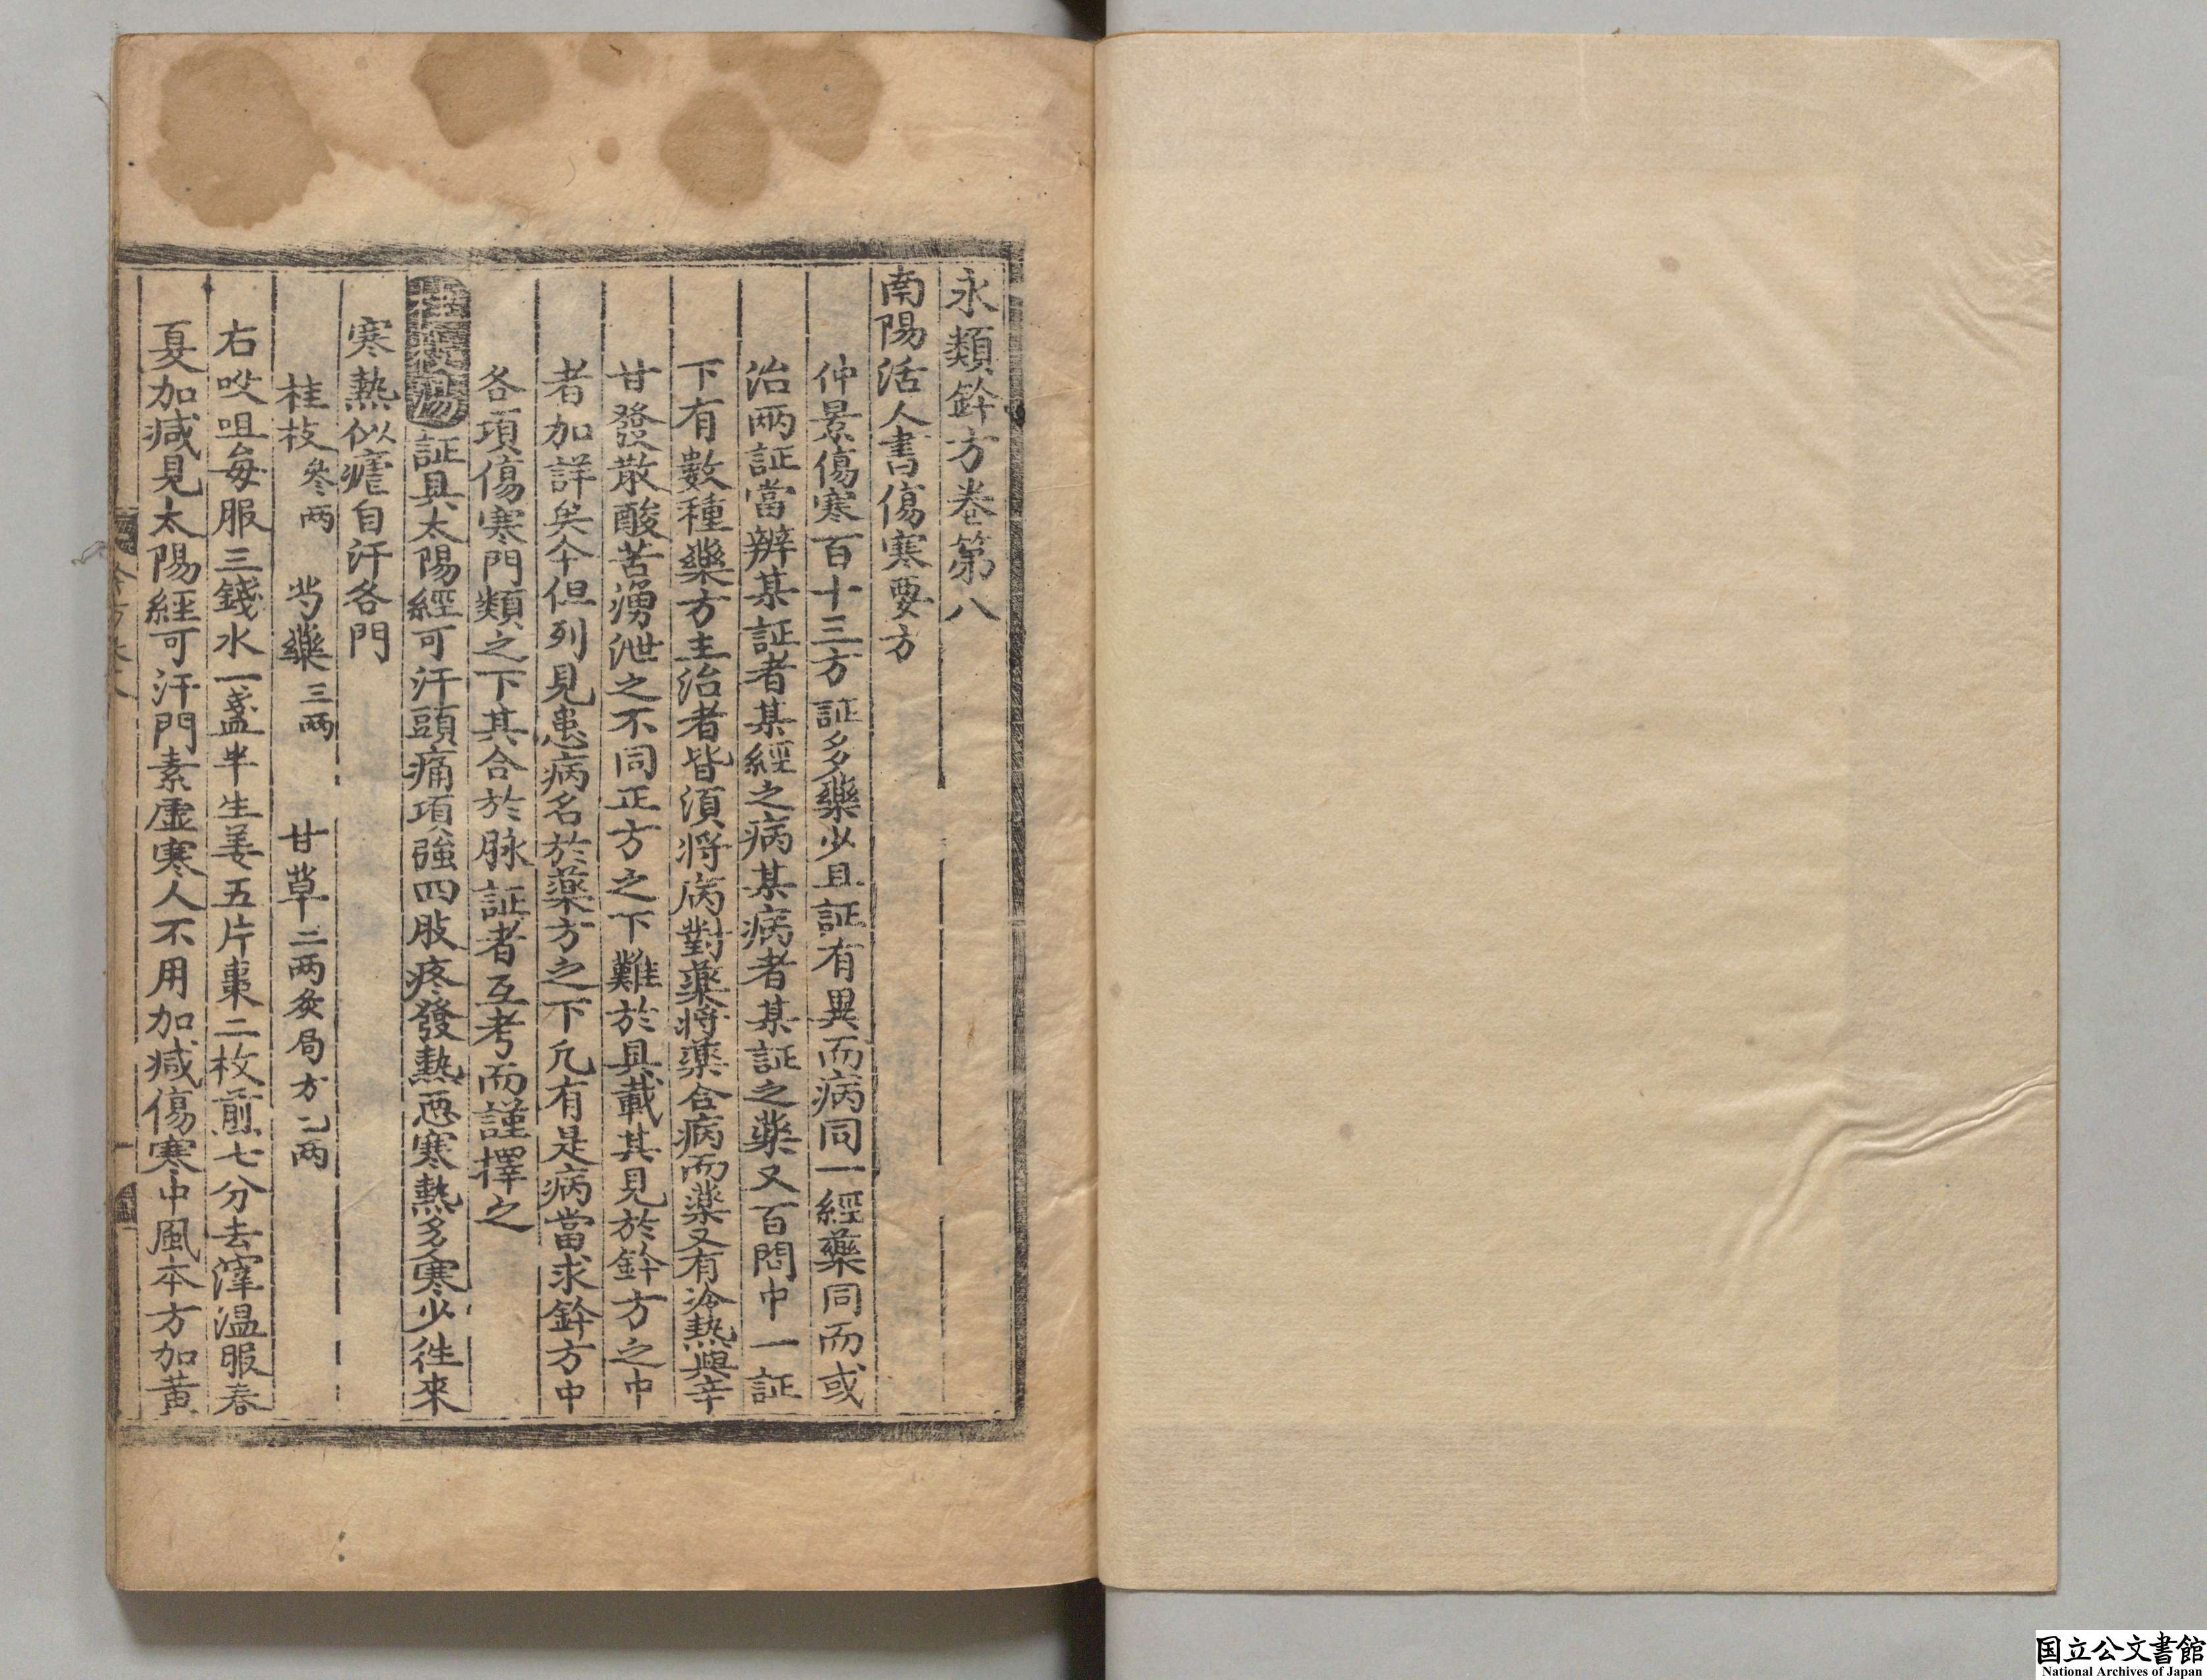 永類鈐方卷第八
南陽活人書傷寒要方
仲景傷寒百十三方証多藥少且証有異而病同一經藥同而或
治兩証當辨某証者某經之病某病者某証之藥又百問中一証
下有數種藥方主治者皆須將病對藥將藥合病而藥又有冷熱與辛
甘發散酸苦湧泄之不同正方之下難於具載其見於鈐方之中
者加詳矣今但列見患病名於藥方之下凡有是病當求鈐方中
各項傷寒門類之下其合於脉証者互考而謹擇之
桂枝湯証具太陽經可汗頭痛項強四肢疼發熱惡寒熱多寒少徃來
寒熱似瘧自汗各門
桂枝叄兩 芍藥三兩 甘草二兩炙局方乙兩
右㕮咀每服三錢水一盞半生姜五片棗二枚煎七分去滓温服春
夏加减見太陽經可汗門素虛寒人不用加减傷寒中風本方加黃
国立公文書館
National Archives of Japan